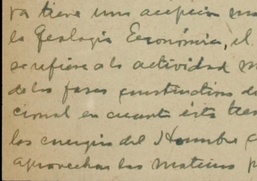 va tiene una acepción ma
la Geología Económica, el
se refiere a la actividad m
de las fases constructivas d
cional en cuanto ésta tien
las energías del Hombre a
aprovechar las materias p